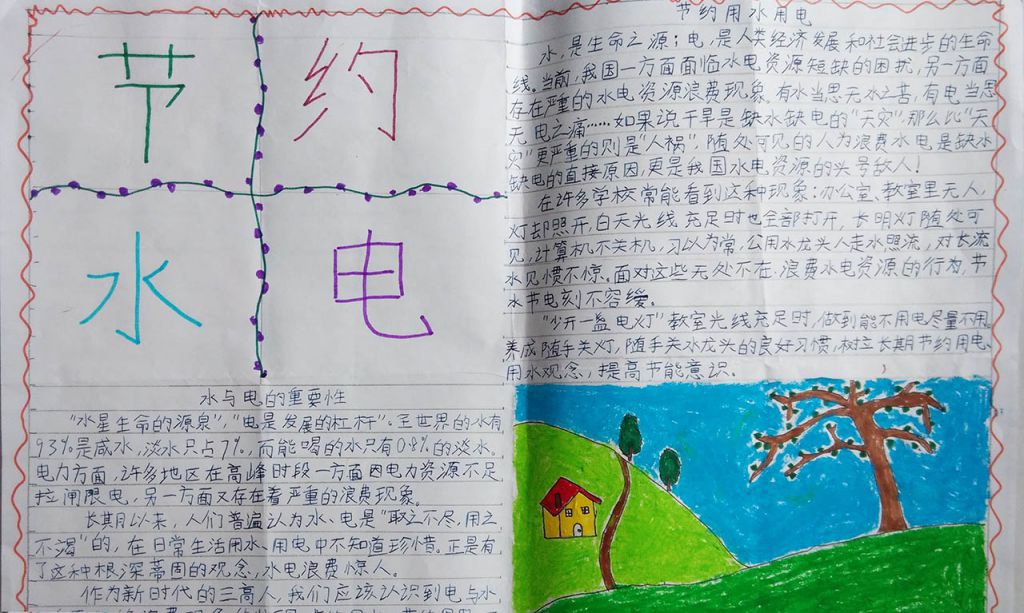 节 约
水 电
水与电的重要性
"水是生命的源泉","电是发展的杠杆"。全世界的水有
93%是咸水,淡水只占7%,而能喝的水只有0.8%的淡水。
电力方面,许多地区在高峰时段一方面因电力资源不足
拉闸限电,另一方面又存在着严重的浪费现象。
长期以来,人们普遍认为水、电是"取之不尽,用之
不渴"的,在日常生活用水、用电中不知道珍惜。正是有
了这种根深蒂固的观念,水电浪费惊人。
作为新时代的三高人,我们应该认识到电与水,
节约用水用电
水,是生命之源;电,是人类经济发展和社会进步的生命
线。当前,我国一方面面临水电资源短缺的困扰,另一方面
存在严重的水电资源浪费现象。有水当思无水之苦,有电当思
无电之痛……如果说干旱是缺水缺电的"天灾",那么比"天
灾"更严重的则是"人祸"。随处可见的人为浪费水电是缺水
缺电的直接原因,更是我国水电资源的头号敌人!
在许多学校常能看到这种现象:办公室、教室里无人,
灯却照开,白天光线充足时也全部打开,长明灯随处可
见,计算机不关机,习以为常,公用水龙头人走水照流,对长流
水见惯不惊。面对这些无处不在浪费水电资源的行为,节
水节电刻不容缓。
"少开一盏电灯"教室光线充足时,做到能不用电尽量不用。
养成随手关灯,随手关水龙头的良好习惯,树立长期节约用电、
用水观念,提高节能意识。